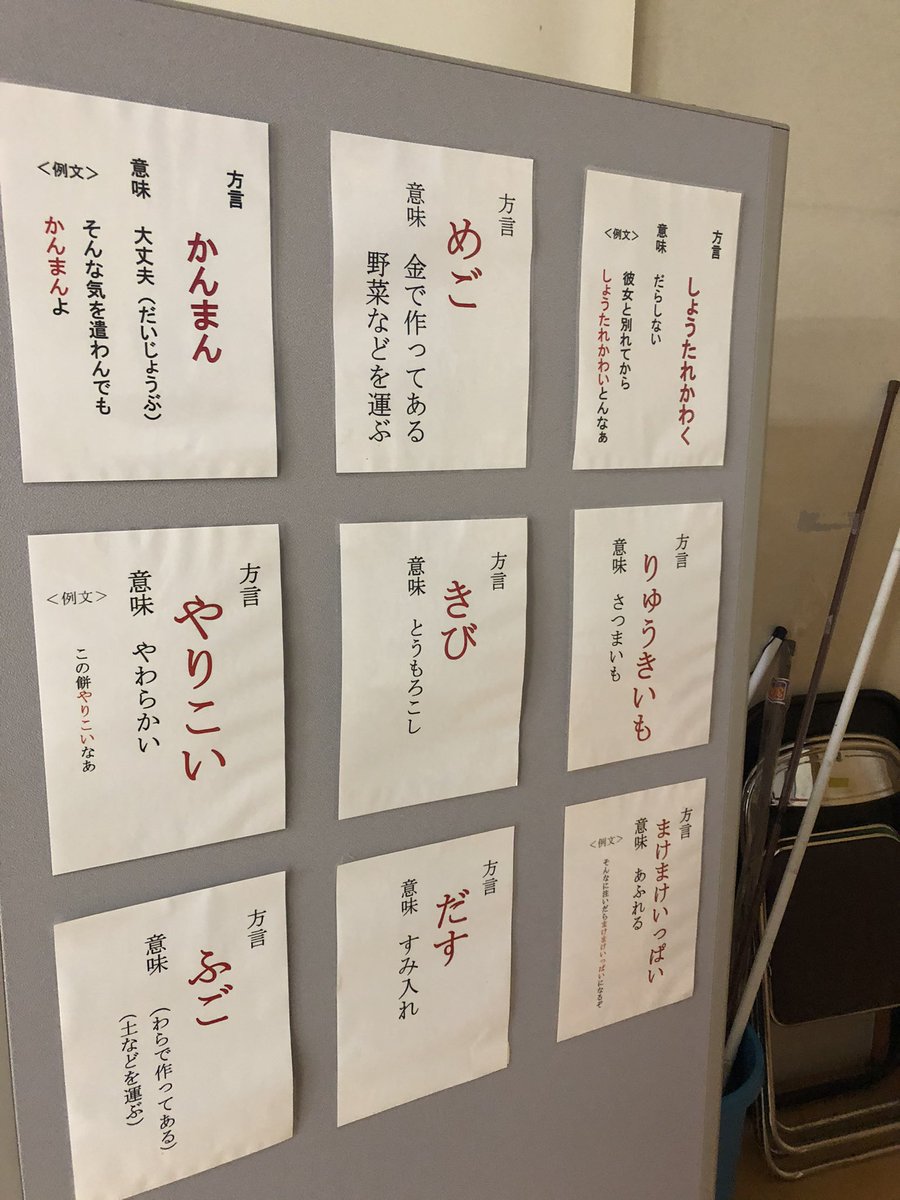 方言
しょうたれかわく
意味 だらしない
<例文> 彼女と別れてから
しょうたれかわいとんなぁ
方言
めご
意味 金で作ってある
野菜などを運ぶ
方言
かんまん
意味 大丈夫(だいじょうぶ)
<例文> そんな気を遣わんでも
かんまんよ
方言
りゅうきいも
意味 さつまいも
方言
きび
意味 とうもろこし
方言
やりこい
意味 やわらかい
<例文> この餅やりこいなあ
方言
まけまけいっぱい
意味 あふれる
<例文> そんなに注いだらまけまけいっぱいになるぞ
方言
だす
意味 すみ入れ
方言
ふご
意味 (わらで作ってある)
(土などを運ぶ)